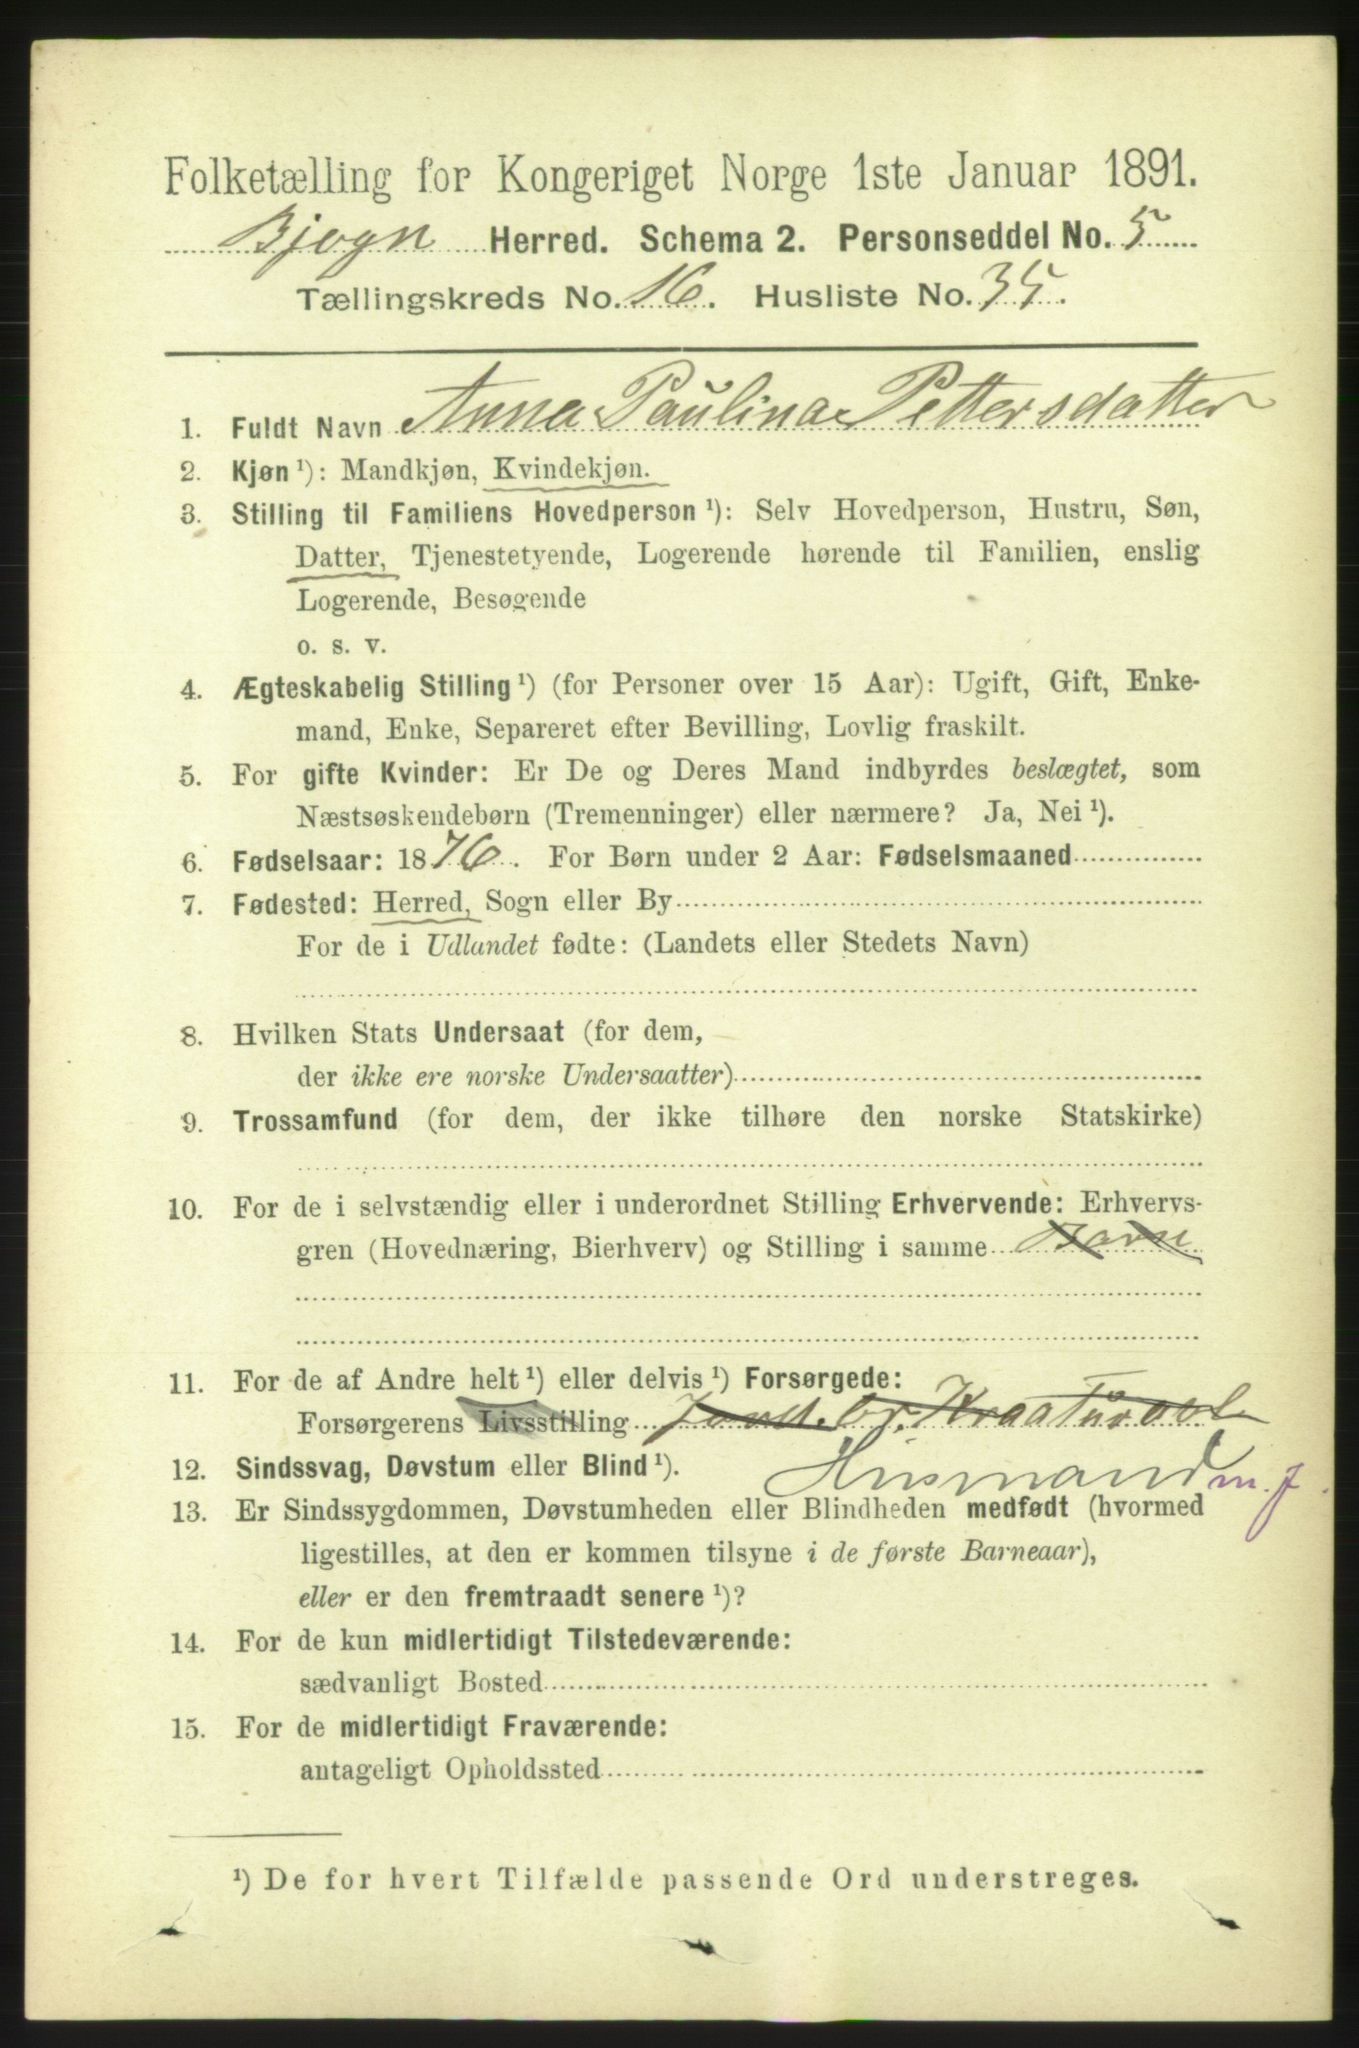 Folketælling for Kongeriget Norge 1ste Januar 1891.
Bjogn Herred. Schema 2. Personseddel No. 5
Tællingskreds No. 16. Husliste No. 35.
1. Fuldt Navn Anna Paulina Pettersdatter
2. Kjøn ¹): Mandkjøn, Kvindekjøn.
3. Stilling til Familiens Hovedperson ¹): Selv Hovedperson, Hustru, Søn,
Datter, Tjenestetyende, Logerende hørende til Familien, enslig
Logerende, Besøgende
o. s. v.
4. Ægteskabelig Stilling ¹) (for Personer over 15 Aar): Ugift, Gift, Enke-
mand, Enke, Separeret efter Bevilling, Lovlig fraskilt.
5. For gifte Kvinder: Er De og Deres Mand indbyrdes beslægtet, som
Næstsøskendebørn (Tremenninger) eller nærmere? Ja, Nei ¹).
6. Fødselsaar: 1876. For Børn under 2 Aar: Fødselsmaaned
7. Fødested: Herred, Sogn eller By
For de i Udlandet fødte: (Landets eller Stedets Navn)
8. Hvilken Stats Undersaat (for dem,
der ikke ere norske Undersaatter)
9. Trossamfund (for dem, der ikke tilhøre den norske Statskirke)
10. For de i selvstændig eller i underordnet Stilling Erhvervende: Erhvervs-
gren (Hovednæring, Bierhverv) og Stilling i samme
11. For de af Andre helt ¹) eller delvis ¹) Forsørgede:
Forsørgerens Livsstilling Jord. br. Kreaturavl
Husmand m. j.
12. Sindssvag, Døvstum eller Blind ¹).
13. Er Sindssygdommen, Døvstumheden eller Blindheden medfødt (hvormed
ligestilles, at den er kommen tilsyne i de første Barneaar),
eller er den fremtraadt senere ¹)?
14. For de kun midlertidigt Tilstedeværende:
sædvanligt Bosted
15. For de midlertidigt Fraværende:
antageligt Opholdssted
¹) De for hvert Tilfælde passende Ord understreges.